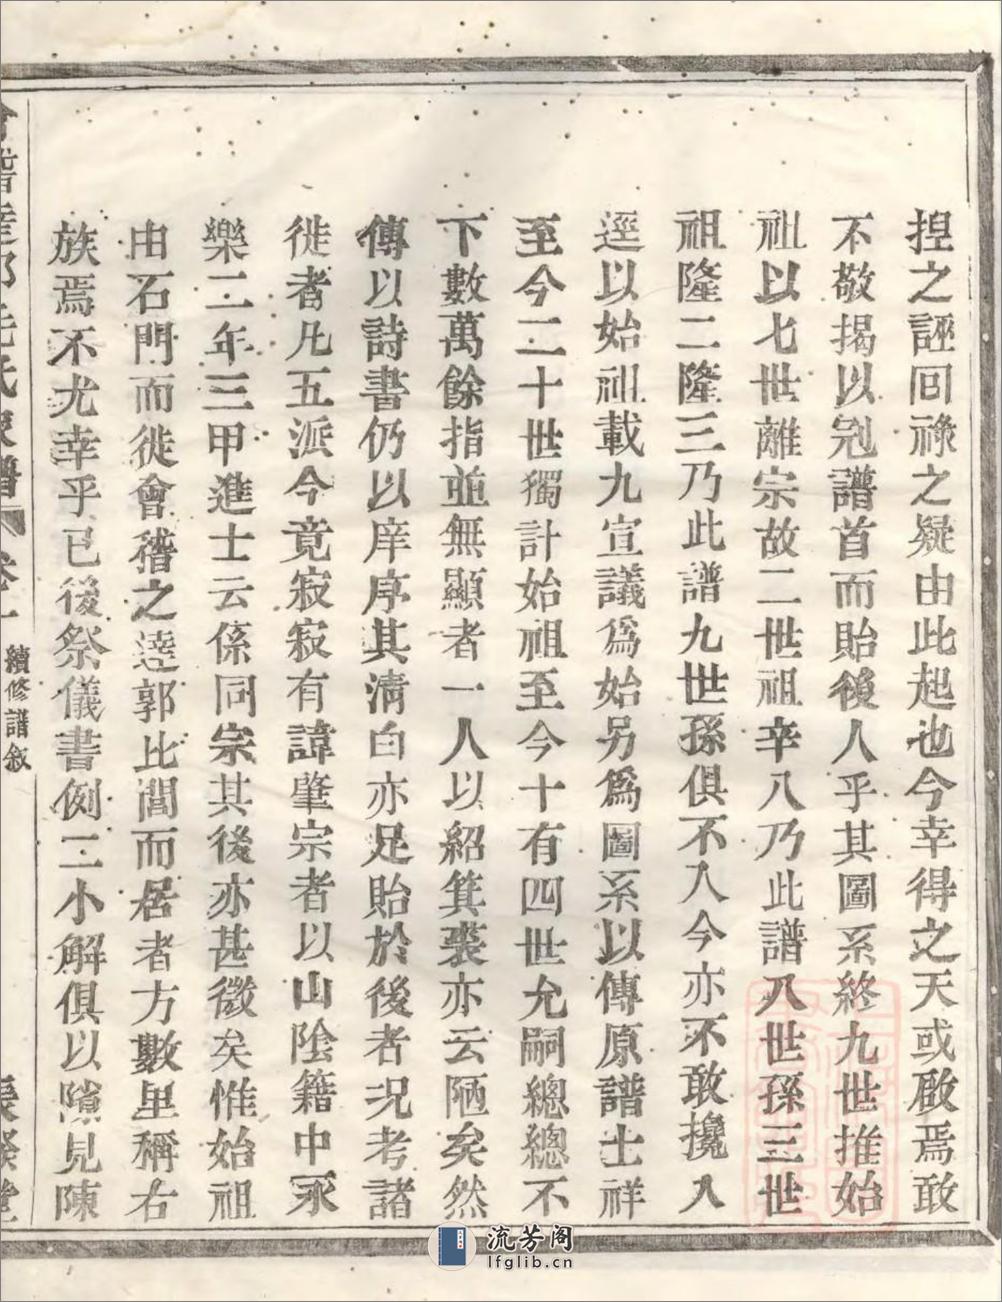 揑之誣回祿之疑由此起也今幸得之天或啟焉敢
不敬揭以冠譜首而貽後人乎其圖系終九世推始
祖以七世離宗故二世祖辛八乃此譜八世孫三世
祖隆二隆三乃此譜九世孫俱不入今亦不敢攙入
逕以始祖載九宣議爲始另爲圖系以傳原譜士祥
至今二十世獨計始祖至今十有四世允嗣總總不
下數萬餘指並無顯者一人以紹箕裘亦云陋矣然
傳以詩書仍以庠序其淸白亦足貽於後者况考諸
徙者凡五派今竟寂寂有諱肇宗者以山陰籍中永
樂二年三甲進士云係同宗其後亦甚微矣惟始祖
由石門而徙會稽之逵郭比閭而居者方數里稱右
族焉不尤幸乎已後祭儀書例二小解俱以隙見陳
續修譜叙
流芳阁
lfglib.cn